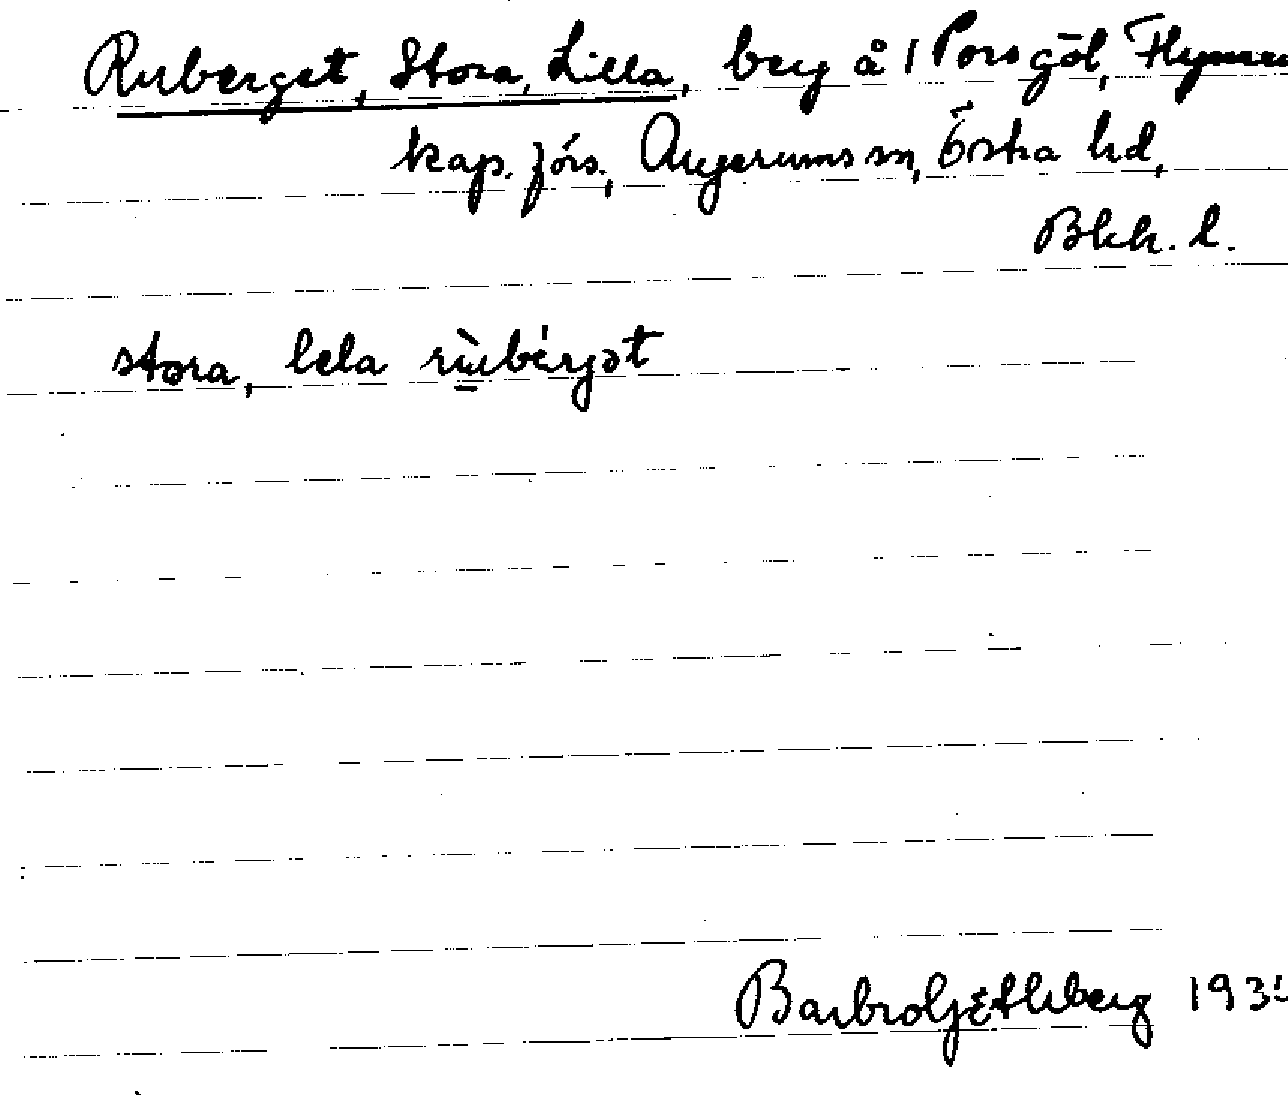 Ruberget, Stora, Lilla, berg å 1 Porsgöl, Flymen
kap. förs., Augerums sn, Östra hd,
Blek. l.
stora, lela rùbérjət
Barbro Ljettberg 193